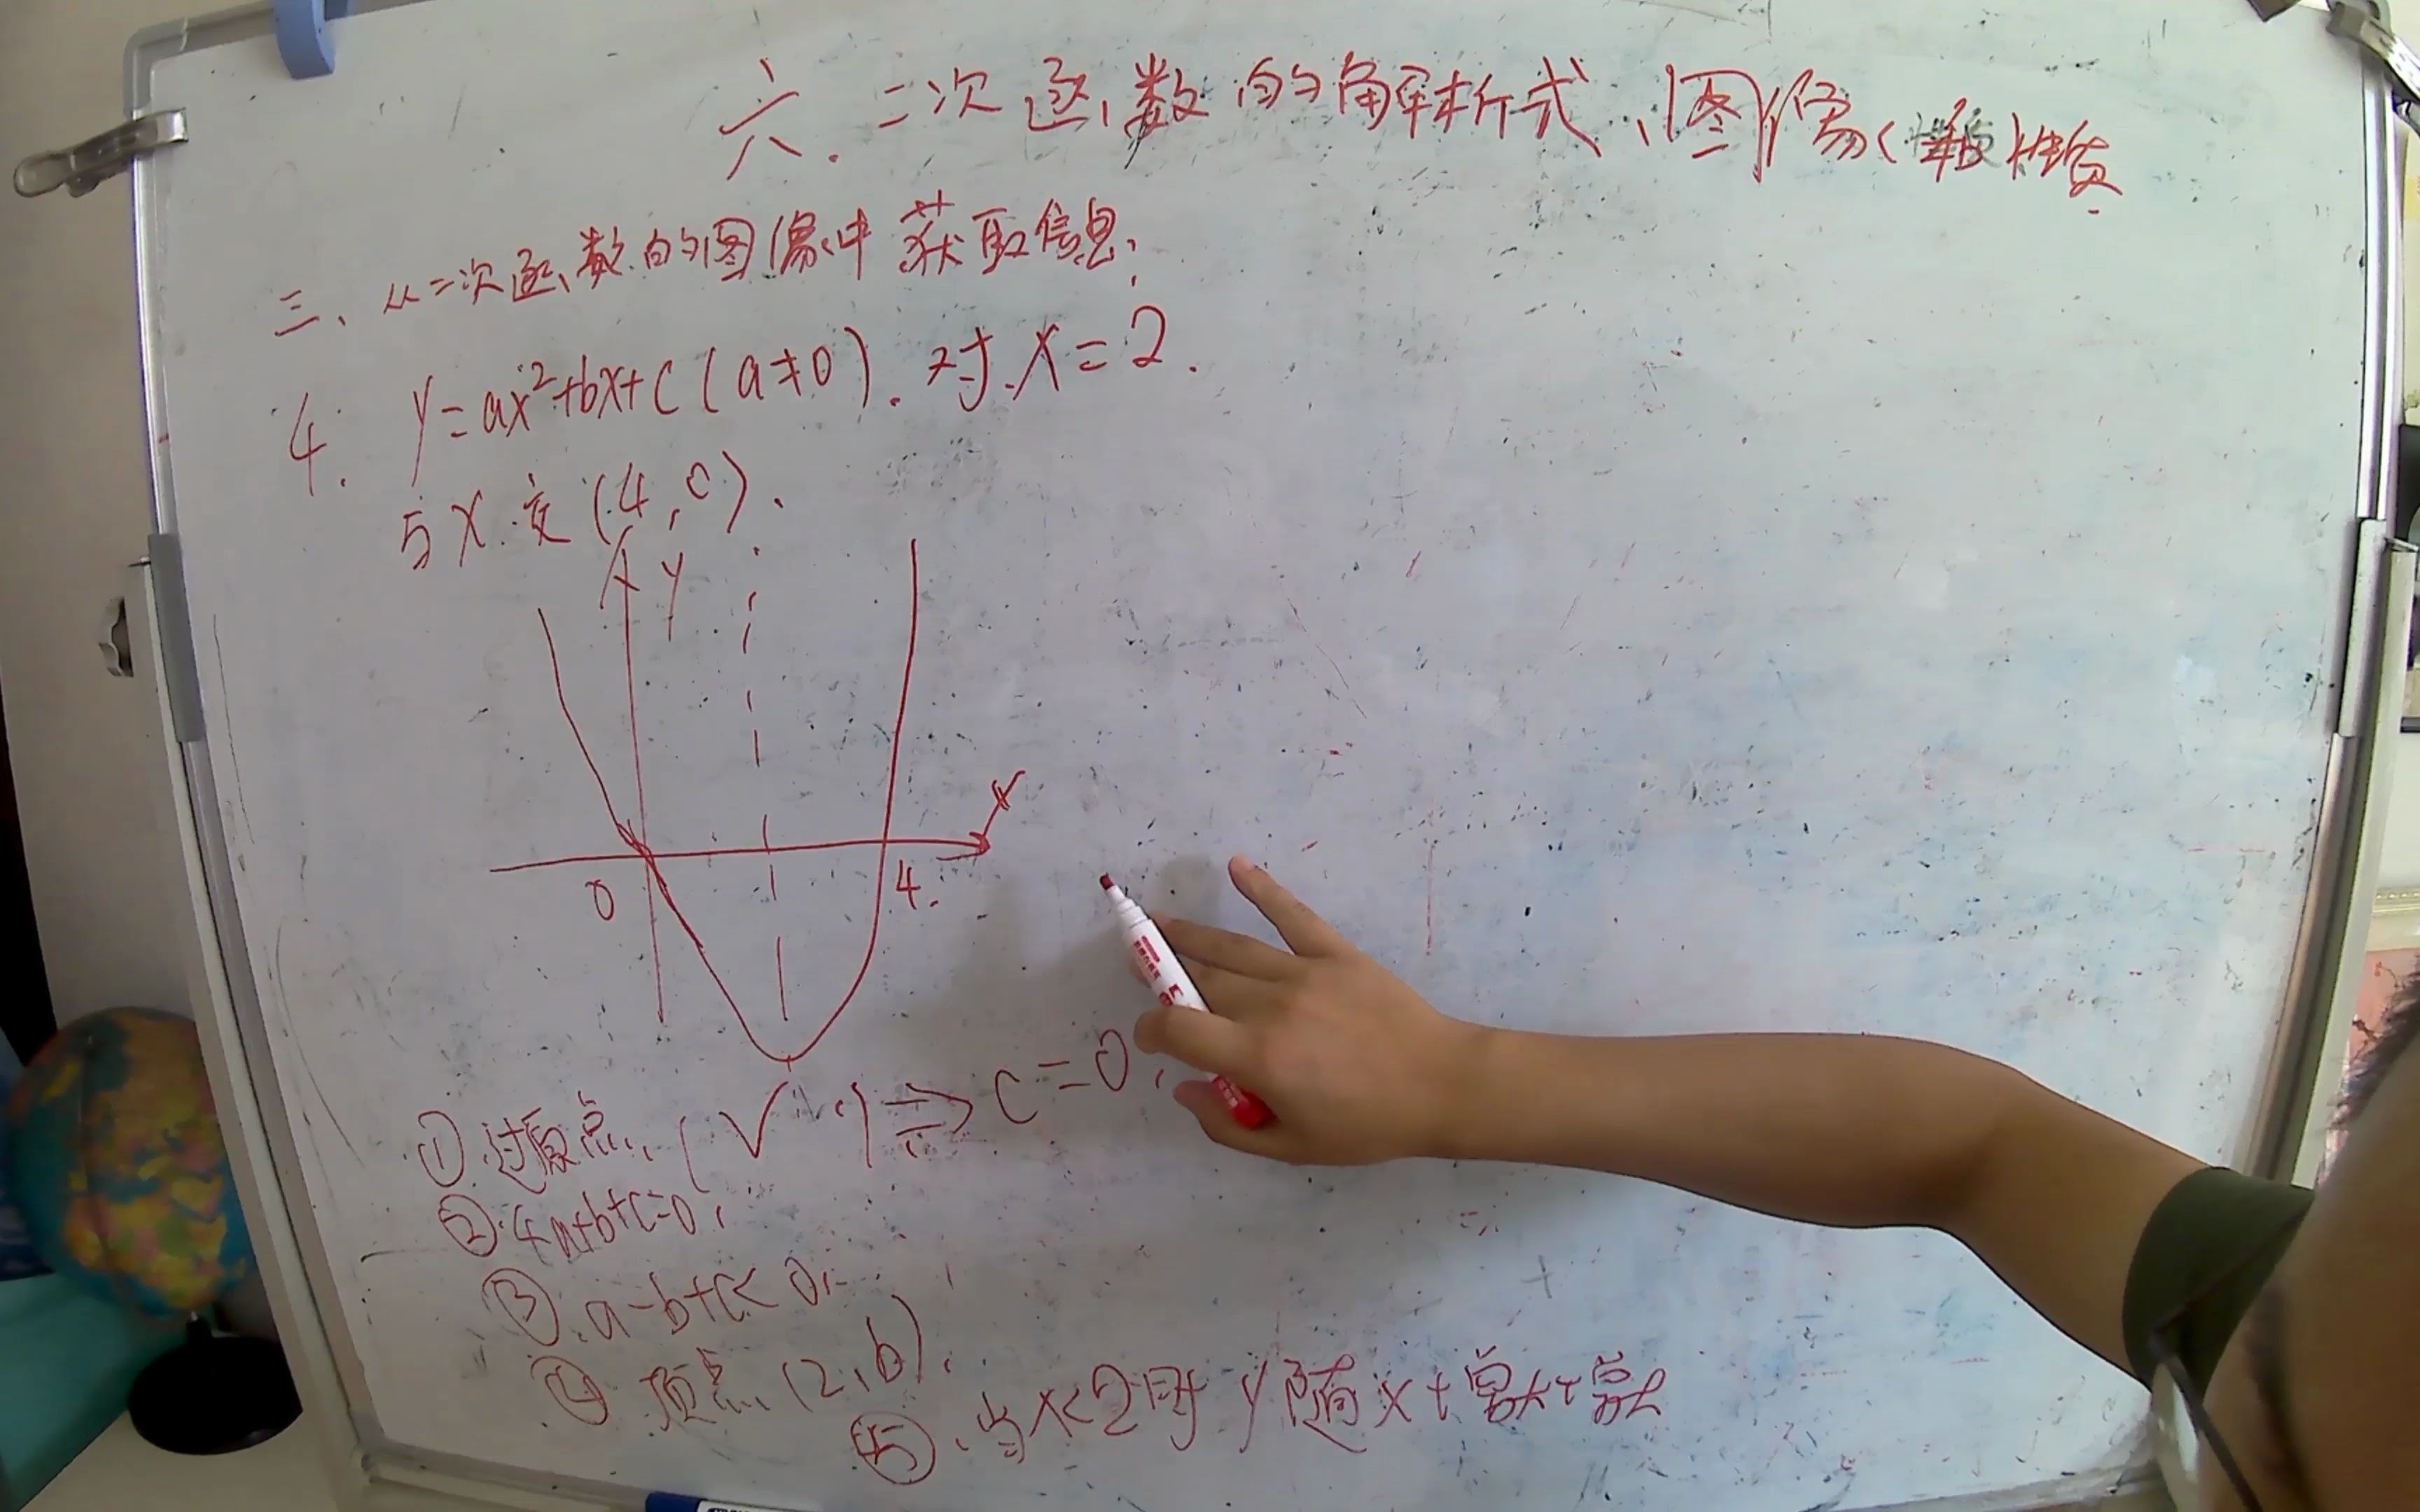 六.二次函数的解析式、图像(草图)性质.
三、从二次函数的图像中获取信息.
4. y=ax²+bx+c(a≠0).对x=2.
与x交(4,0).
y
x
0
4.
①.过原点.(√)⇒c=0.
②.4a+b+c=0.
③.a-b+c<0.
④顶点(2,b).
⑤.当x<2时y随x+